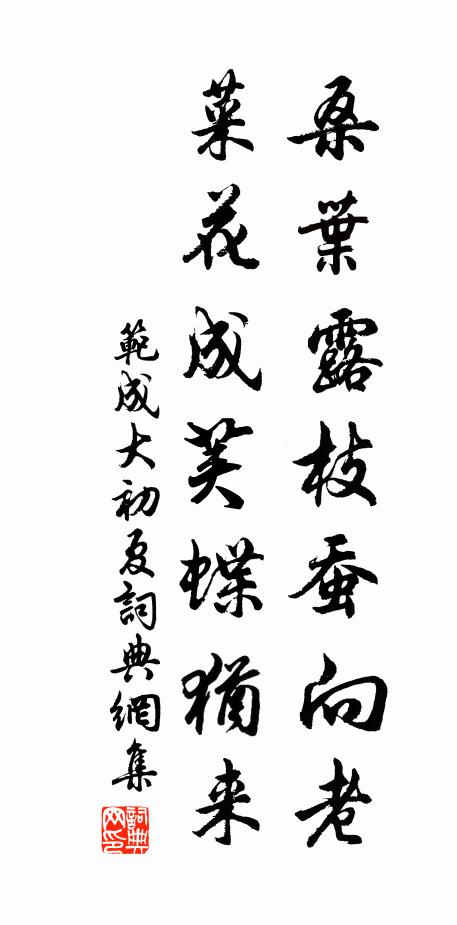 桑葉露枝蚕向老
菜花成荚蝶猶来
範成大初夏詞典網集
詞典网印